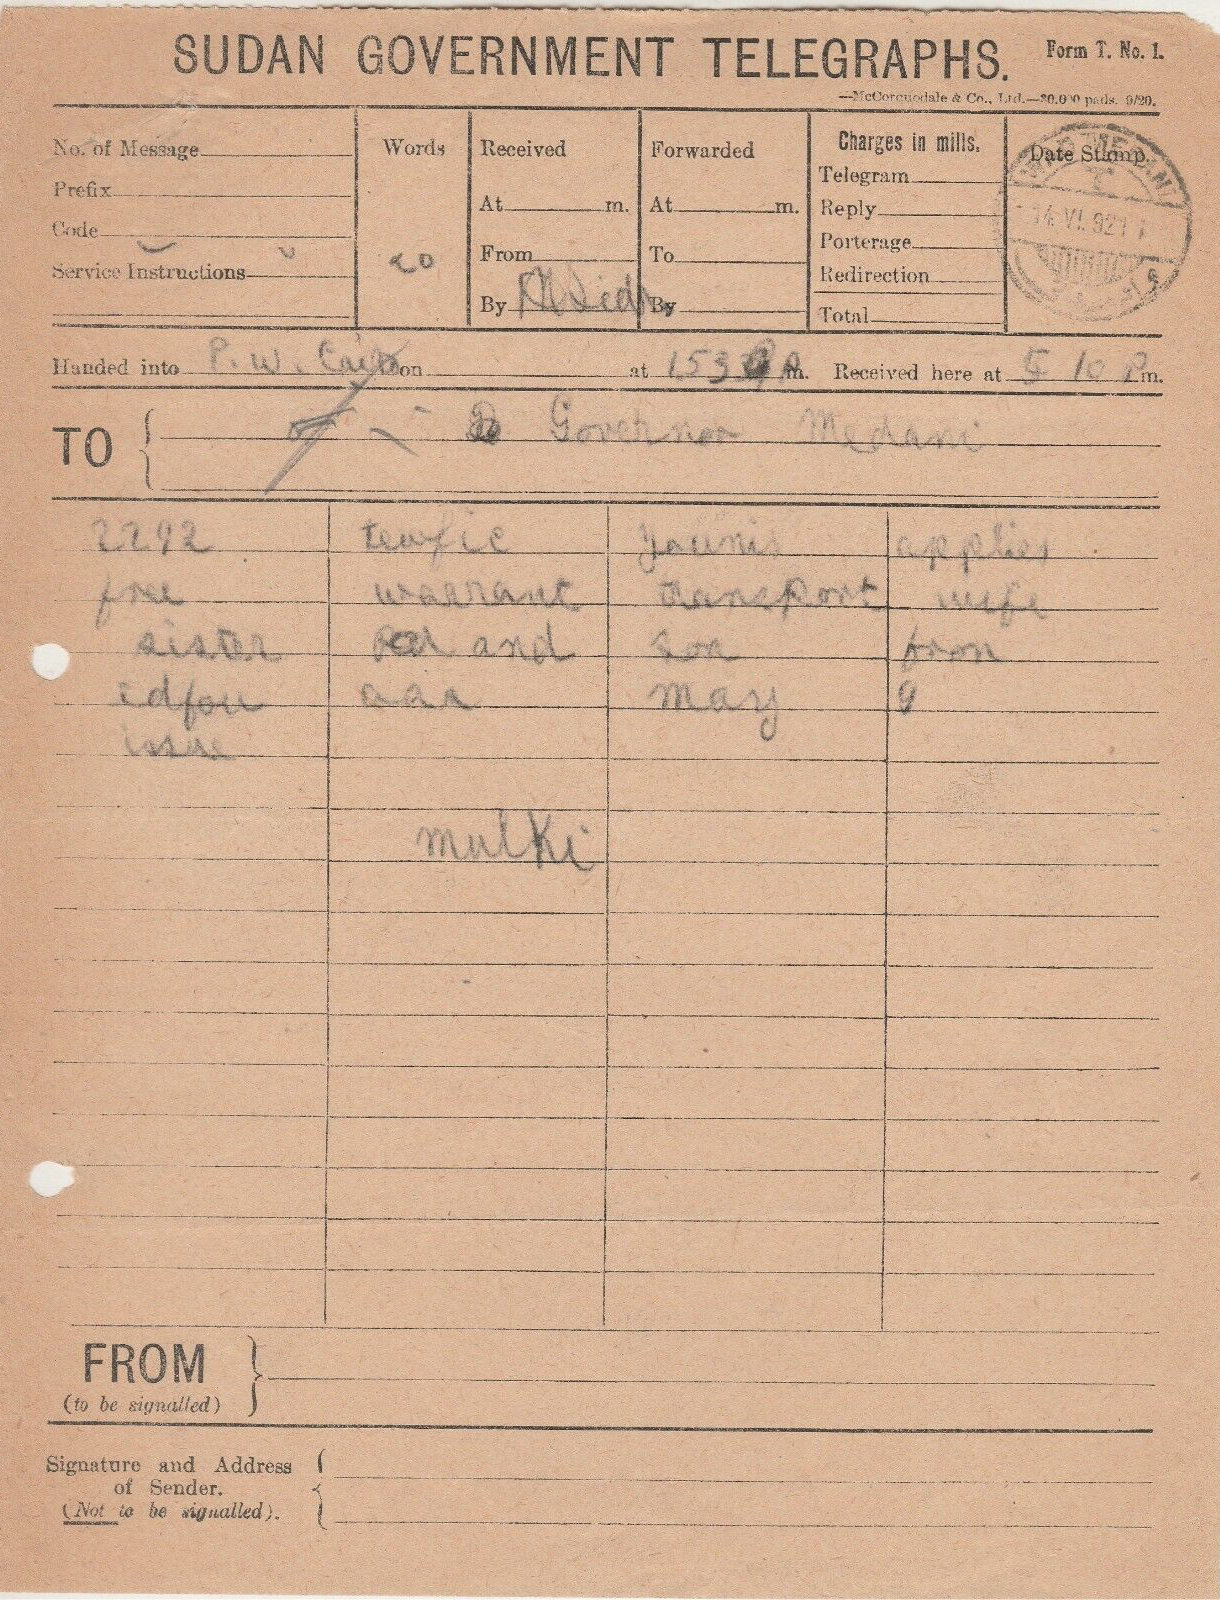 SUDAN GOVERNMENT TELEGRAPHS.
Form T. No. 1.
—McCorquodale & Co., Ltd.—30,000 pads. 9/20.
No. of Message
Prefix
Code
Service Instructions
Words
20
Received
At m.
From
By
Forwarded
At m.
To
By
Charges in mills.
Telegram
Reply
Porterage
Redirection
Total
Date Stamp.
WAD MEDANI
T
14.VI.921
Handed into P. W. Cairo on at 1533 m. Received here at 5 10 P m.
TO Governor Medani
2292 tewfic younis applies
free warrant transport wife
sister and son from
edfou aaa may 9
issue
mulki
FROM
(to be signalled)
Signature and Address
of Sender.
(Not to be signalled).